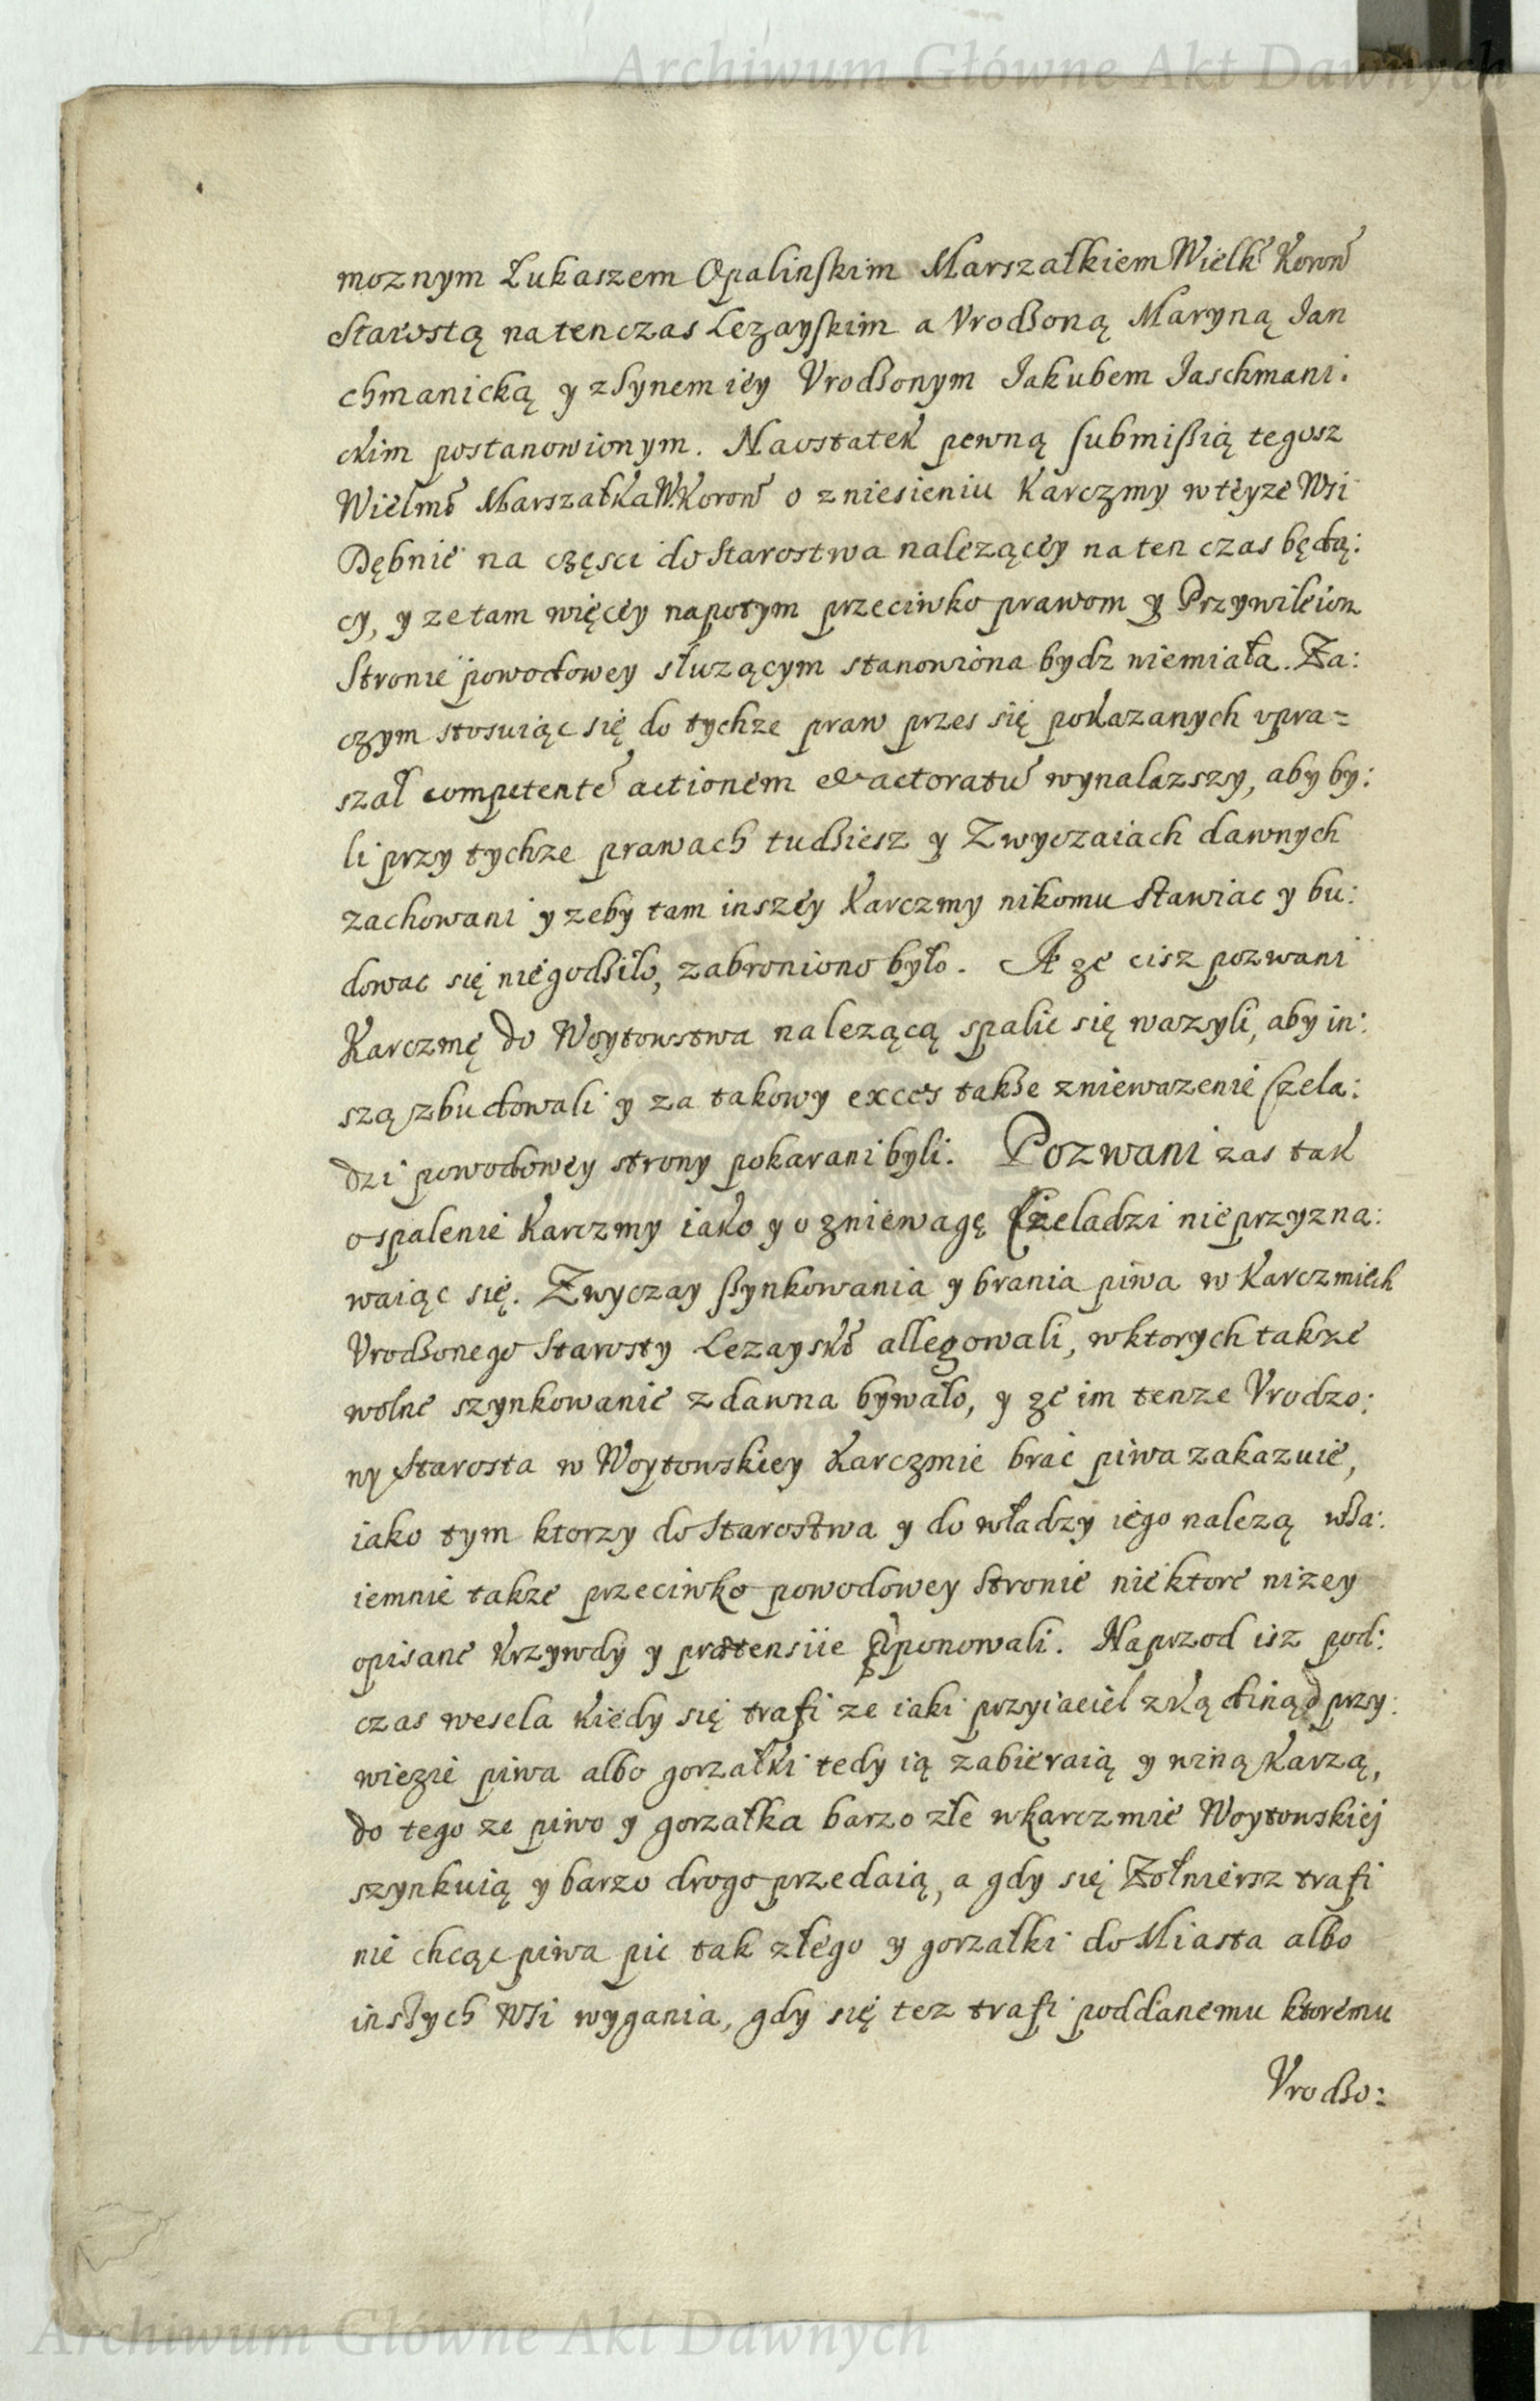 Archiwum Główne Akt Dawnych
moznym Łukaszem Opalinskim Marszałkiem Wielk Koron
Starostą na ten czas Lezayskim a Vrodzoną Maryną Jan
chmanicką y z Synem iey Vrodzonym Jakubem Jaschmani.
ckim postanowionym. Naostatek pewną submissią tegosz
Wielmo Marszałka W. Koron o zniesieniu Karczmy w teyze Wsi
Dębnie na częsci do Starostwa nalezącey na ten czas będą:
cy, y ze tam więcey napotym przeciwko prawom y Przywileiom
Stronie powodowey słuzącym stanowiona bydz niemiała. Za:
czym stosuiąc się do tychze praw przes się pokazanych vpra=
szał competente actionem & actoratu wynalazszy, aby by:
li przy tychze prawach tudziesz y Zwyczaiach dawnych
zachowani y zeby tam inszey Karczmy nikomu stawiac y bu:
dowac się niegodziło, zabroniono było. A ze cisz pozwani
Karczmę do Woytowstwa nalezącą spalic się wazyli, aby in:
szą zbudowali y za takowy exces takze zniewazenie Czela:
dzi powodowey strony pokarani byli. Pozwani zas tak
o spalenie Karczmy iako y o zniewagę Czeladzi nie przyzna:
waiąc się. Zwyczay szynkowania y brania piwa w Karczmiech
Vrodzonego Starosty Lezaysko allegowali, w ktorych takze
wolne szynkowanie zdawna bywało, y ze im tenze Vrodzo:
ny Starosta w Woytowskiey Karczmie brac piwa zakazuie,
iako tym ktorzy do Starostwa y do władzy iego nalezą wza:
iemnie takze przeciwko powodowey Stronie niektore nizey
opisane Krzywdy y prætensiie proponowali. Naprzod isz pod:
czas wesela kiedy się trafi ze iaki przyiaciel z kądinąd przy:
wiezie piwa albo gorzałki tedy ią zabieraią y winą karzą,
do tego ze piwo y gorzałka barzo złe w karczmie Woytowskiej
szynkuią y barzo drogo przedaią, a gdy się Zołniersz trafi
nie chcąc piwa pic tak złego y gorzałki do Miasta albo
inszych Wsi wygania, gdy się tez trafi poddanemu ktoremu
Vrodzo:
Archiwum Główne Akt Dawnych